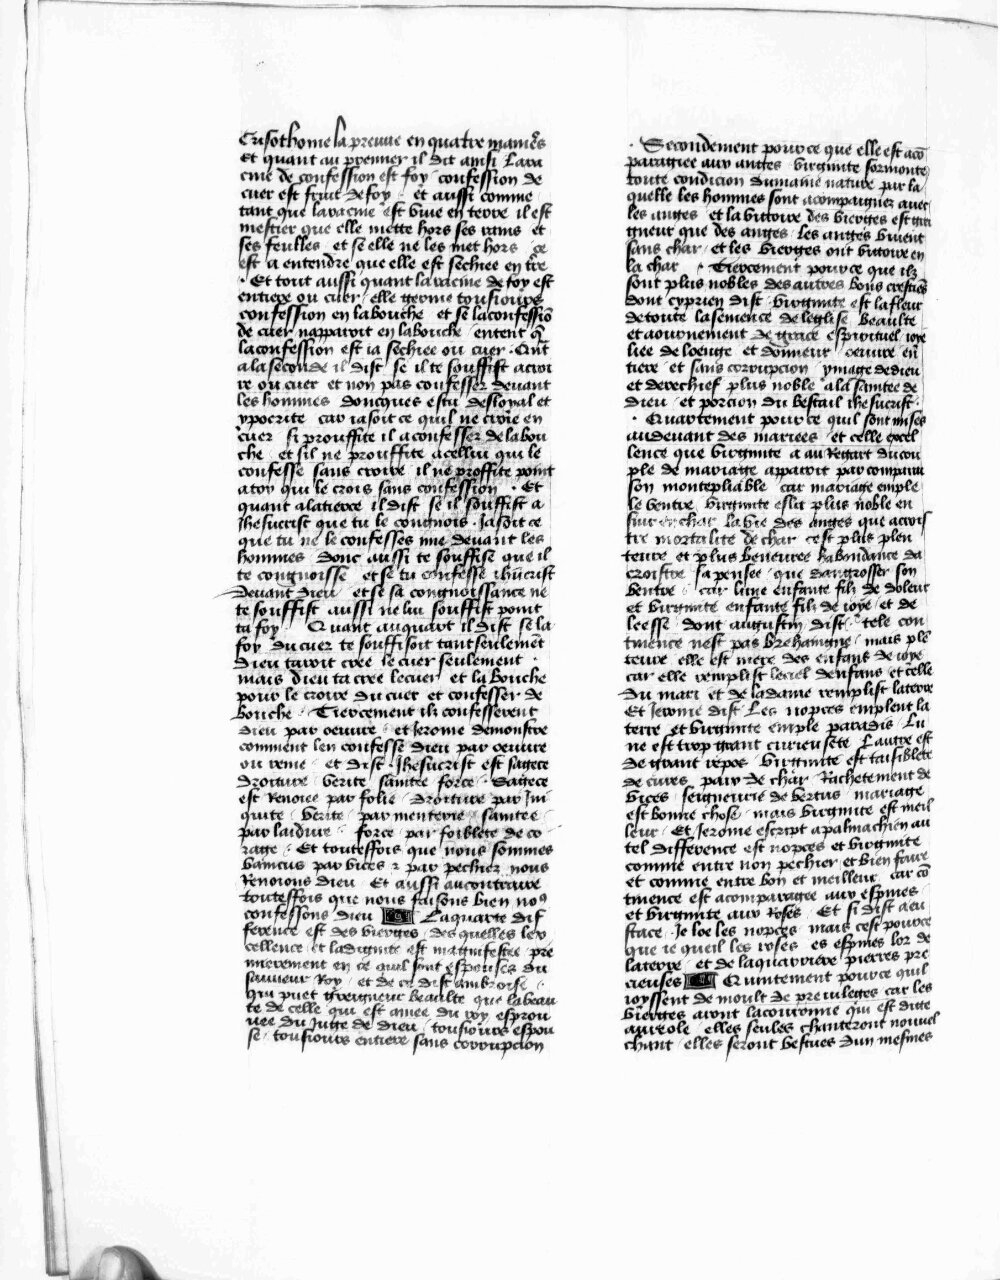 Crisothome la preuue en quatre manie͛s
Et quant au premier il dit ainsi Lara
cine de confession est foy confession de
cuer est fruit de foy et aussi comme
tant que la racine est viue en terre il est
mestier que elle mette hors ses rains et
ses feulles et se elle ne les met hors ce
est a entendre que elle est sechiee en t͛re
· Et tout aussi quant la racine de foy est
entiere ou cuer elle germe tousiours
confession en la bouche et se la confessiō
de cuer napparoit en la bouche entent q̄
la confession est ia sechiee ou cuer · Qn̄t
a la seconde il dist se il te souffist a croi
re ou cuer et non pas confesser deuant
les hommes doncques es tu desloyal et
ypocrite car ia soit ce quil ne croie en
cuer si prouffite il a confesser de la bou
che et sil ne prouffite a cellui qui le
confesse sans croire il ne proffite point
a toy qui le crois sans confession · Et
quant a la tierce il dist se il souffist a
Ihesucrist que tu le congnois · Ja soit ce
que tu ne le confesses mie deuant les
hommes donc aussi te souffise que il
te congnoisse et se tu confesse ihūcrist
deuant dieu et se sa congnoissance ne
te souffist aussi ne lui souffist point
ta foy Quant au quart il dist se la
foy du cuer te souffisoit tant seulemēt
Dieu tauroit cree le cuer seulement ·
mais dieu ta cree le cuer et la bouche
pour le croire du cuer et confesser de
bouche · Tiercement ilz confesserent
dieu par oeuure et Jerome demonstre
comment len confesse dieu par oeuure
ou renie et dist Ihesucrist est sagece
droiture verite sainttee force · Sagece
est Renoiee par folie droiture par Ini
quite verite par menterie sainttee
par laidure force par foiblete de co
rage · Et toutesfois que nous sommes
vaincus par vices ⁊ par pechiez nous
Renoions dieu Et aussi au contraire
toutesfois que nous faisons bien noꝰ
confessons dieu La quarte dif
ference est des vierges des quelles lex
cellence et la dignite est magnifestee pre
mierement en ce quil sont espouses du
sauueur Roy et de ce dist ambroise ·
Qui puet greigneur beaulte que la beau
te de celle qui est amee du roy esprou
uee du Juge de dieu tousiours espou
se tousiours entiere sans corrupcion
· Secondement pour ce que elle est acō
paragiee aux anges virginite sormonte
toute condicion dumaine nature par la
quelle les hommes sont acompaigniez auec
les anges et la victoire des vierges est grei
gneur que des anges les anges viuent
sans char et les vierges ont victoire en
la char · Tiercement pour ce que ilz
sont plus nobles des autres bons crestiēs
dont cyprien dist virginite est la fleur
de toute la semence de leglise beaulte
et aournement de grace espirituel ioye
liee de loenge et donneur oeuure en
tiere et sans corrupcion ymage de dieu
et derechief plus noble a la saintee de
dieu et porcion du bestail ihesucrist ·
· Quartement pour ce quil sont mises
au deuant des mariees et celle excel
lence que virginite a au Regart du cou
ple de mariage apparoit par comparai
son montepliable car mariage emple
le ventre virginite
char la vie des anges que accrois
tre mortalite de char cest plus plen
teure et plus beneuree habondance da
croistre sa pensee que dangrosser son
ventre car lune enfante filz de doleur
et virginite enfante filz de ioye et de
leesse dont augustin dist tele con
tinence nest pas brehaingne mais plē
teure elle est mere des enfans de ioye
car elle remplist le ciel denfans et celle
du mari et de la dame remplist la terre
Et Jerome dist Les nopces emplent la
terre et virginite emple paradis Lu
ne est trop grant curieusete Lautre est
de grant repos virginite est taisiblete
de cures paix de char Rachetement de
vices seigneurie de vertus mariage
est bonne chose mais virginite est meil
leur Et Jerome escript a palmachien au
tel difference est nopces et virginite
comme entre non pechier et bien faire
et comme entre bon et meilleur car cō
tinence est acomparagee aux espines
et virginite aux Roses Et si dist a eu
stace Je loe les nopces mais cest pource
que ie queil les roses es espines lor de
la terre et de la quarriere pierres pre
cieuses Quintement pour ce quil
ioyssent de moult de preuileges car les
vierges auront la couronne qui est dite
aureole elles seules chanteront nouuel
chant elles seront vestues dun mesmes